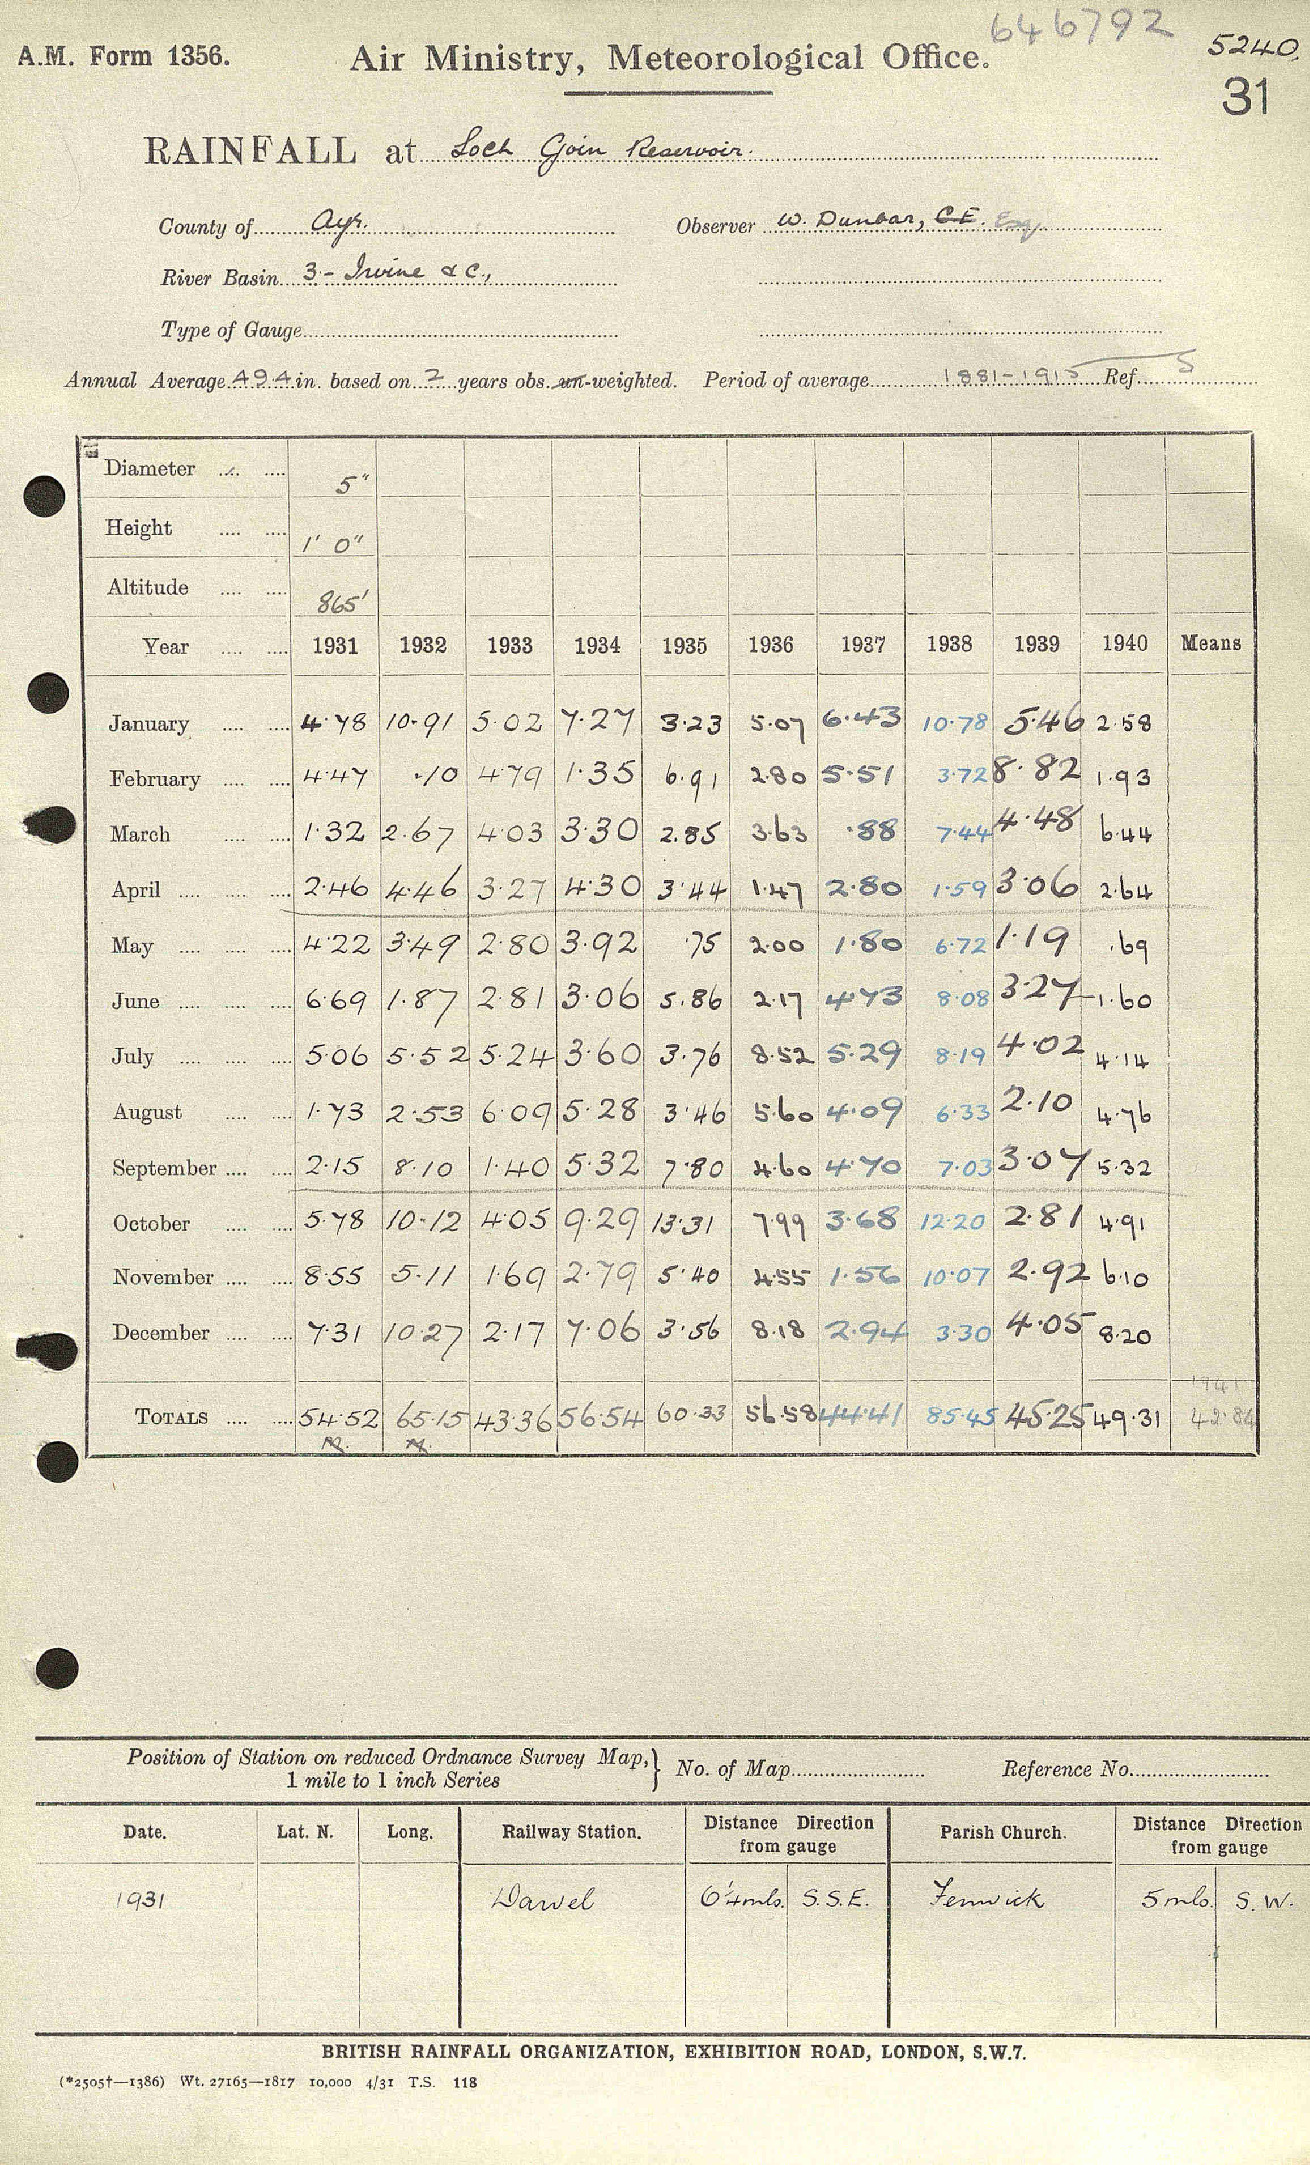 646792
A.M. Form 1356. Air Ministry, Meteorological Office. 5240.
31
RAINFALL at Loch Goin Reservoir.
County of Ayr. Observer W. Dunbar, C.E. Esq
River Basin 3 - Irvine &c.,
Type of Gauge
Annual Average 49.4 in. based on 7 years obs. un-weighted. Period of average 1881-1915 Ref. S
Diameter 5"
Height 1' 0"
Altitude 865'
Year 1931 1932 1933 1934 1935 1936 1937 1938 1939 1940 Means
January 4.78 10.91 5.02 7.27 3.23 5.07 6.43 10.78 5.46 2.58
February 4.47 .10 4.79 1.35 6.91 2.80 5.51 3.72 8.82 1.93
March 1.32 2.67 4.03 3.30 2.85 3.63 .88 7.44 4.48 6.44
April 2.46 4.46 3.27 4.30 3.44 1.47 2.80 1.59 3.06 2.64
May 4.22 3.49 2.80 3.92 .75 2.00 1.80 6.72 1.19 .69
June 6.69 1.87 2.81 3.06 5.86 2.17 4.73 8.08 3.27 1.60
July 5.06 5.52 5.24 3.60 3.76 8.52 5.29 8.19 4.02 4.14
August 1.73 2.53 6.09 5.28 3.46 5.60 4.09 6.33 2.10 4.76
September 2.15 8.10 1.40 5.32 7.80 4.60 4.70 7.03 3.07 5.32
October 5.78 10.12 4.05 9.29 13.31 7.99 3.68 12.20 2.81 4.91
November 8.55 5.11 1.69 2.79 5.40 4.55 1.56 10.07 2.92 6.10
December 7.31 10.27 2.17 7.06 3.56 8.18 2.94 3.30 4.05 8.20
1941
TOTALS 54.52 65.15 43.36 56.54 60.33 56.58 44.41 85.45 45.25 49.31 42.84
Position of Station on reduced Ordnance Survey Map,
1 mile to 1 inch Series } No. of Map Reference No.
Date. Lat. N. Long. Railway Station. Distance Direction from gauge Parish Church. Distance Direction from gauge
1931 Darvel 6¼ mls. S.S.E. Fenwick 5 mls. S.W.
BRITISH RAINFALL ORGANIZATION, EXHIBITION ROAD, LONDON, S.W.7.
(*2505†—1386) Wt. 27165—1817 10,000 4/31 T.S. 118